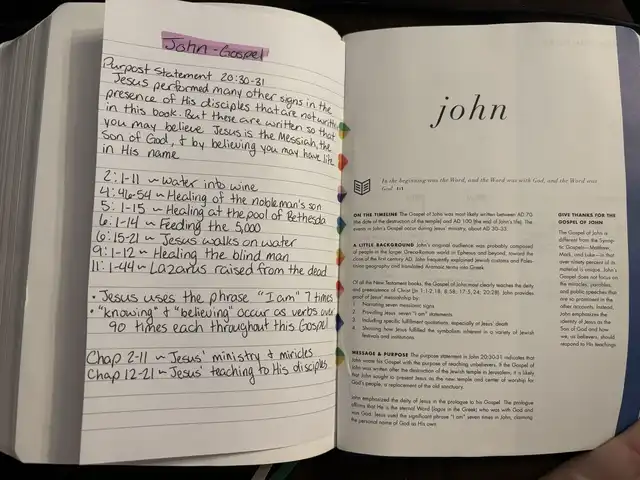 John - Gospel
Purpost Statement 20:30-31
Jesus performed many other signs in the
presence of His disciples that are not written
in this book. But these are written so that
you may believe Jesus is the Messiah, the
son of God, & by believing you may have life
in His name
2:1-11 ~ Water into wine
4:46-54 ~ Healing of the nobleman's son
5:1-15 ~ Healing at the pool of Bethesda
6:1-14 ~ Feeding the 5,000
6:15-21 ~ Jesus walks on water
9:1-12 ~ Healing the blind man
11:1-44 ~ Lazarus raised from the dead
• Jesus uses the phrase "I am" 7 times
• "knowing" & "believing" occur as verbs over
90 times each throughout this Gospel
Chap 2-11 ~ Jesus' ministry & miricles
Chap 12-21 ~ Jesus' teaching to His disciples
john
In the beginning was the Word, and the Word was with God, and the Word was
God. 1:1
ON THE TIMELINE The Gospel of John was most likely written between AD 70
(the date of the destruction of the temple) and AD 100 (the end of John's life). The
events in John's Gospel occur during Jesus' ministry, about AD 30–33.
A LITTLE BACKGROUND John's original audience was probably composed
of people in the larger Greco-Roman world in Ephesus and beyond, toward the
close of the first century AD. John frequently explained Jewish customs and Pales-
tinian geography and translated Aramaic terms into Greek
Of all the New Testament books, the Gospel of John most clearly teaches the deity
and preexistence of Christ (Jn 1:1-2,18; 8:58; 17:5, 24; 20:28). John provides
proof of Jesus' messiahship by:
1 Narrating seven messianic signs
2 Providing Jesus' seven "I am" statements
3 Including specific fulfillment quotations, especially at Jesus' death
4 Showing how Jesus fulfilled the symbolism inherent in a variety of Jewish
festivals and institutions
MESSAGE & PURPOSE The purpose statement in John 20:30-31 indicates that
John wrote his Gospel with the purpose of reaching unbelievers. If the Gospel of
John was written after the destruction of the Jewish temple in Jerusalem, it is likely
that John sought to present Jesus as the new temple and center of worship for
God's people, a replacement of the old sanctuary.
John emphasized the deity of Jesus in the prologue to his Gospel. The prologue
affirms that He is the eternal Word (logos in the Greek) who was with God and
was God. Jesus used the significant phrase "I am" seven times in John, claiming
the personal name of God as His own.
GIVE THANKS FOR THE
GOSPEL OF JOHN
The Gospel of John is
different from the Synop-
tic Gospels—Matthew,
Mark, and Luke—in that
over ninety percent of its
material is unique. John's
Gospel does not focus on
the miracles, parables,
and public speeches that
are so prominent in the
other accounts. Instead,
John emphasizes the
identity of Jesus as the
Son of God and how
we, as believers, should
respond to His teachings